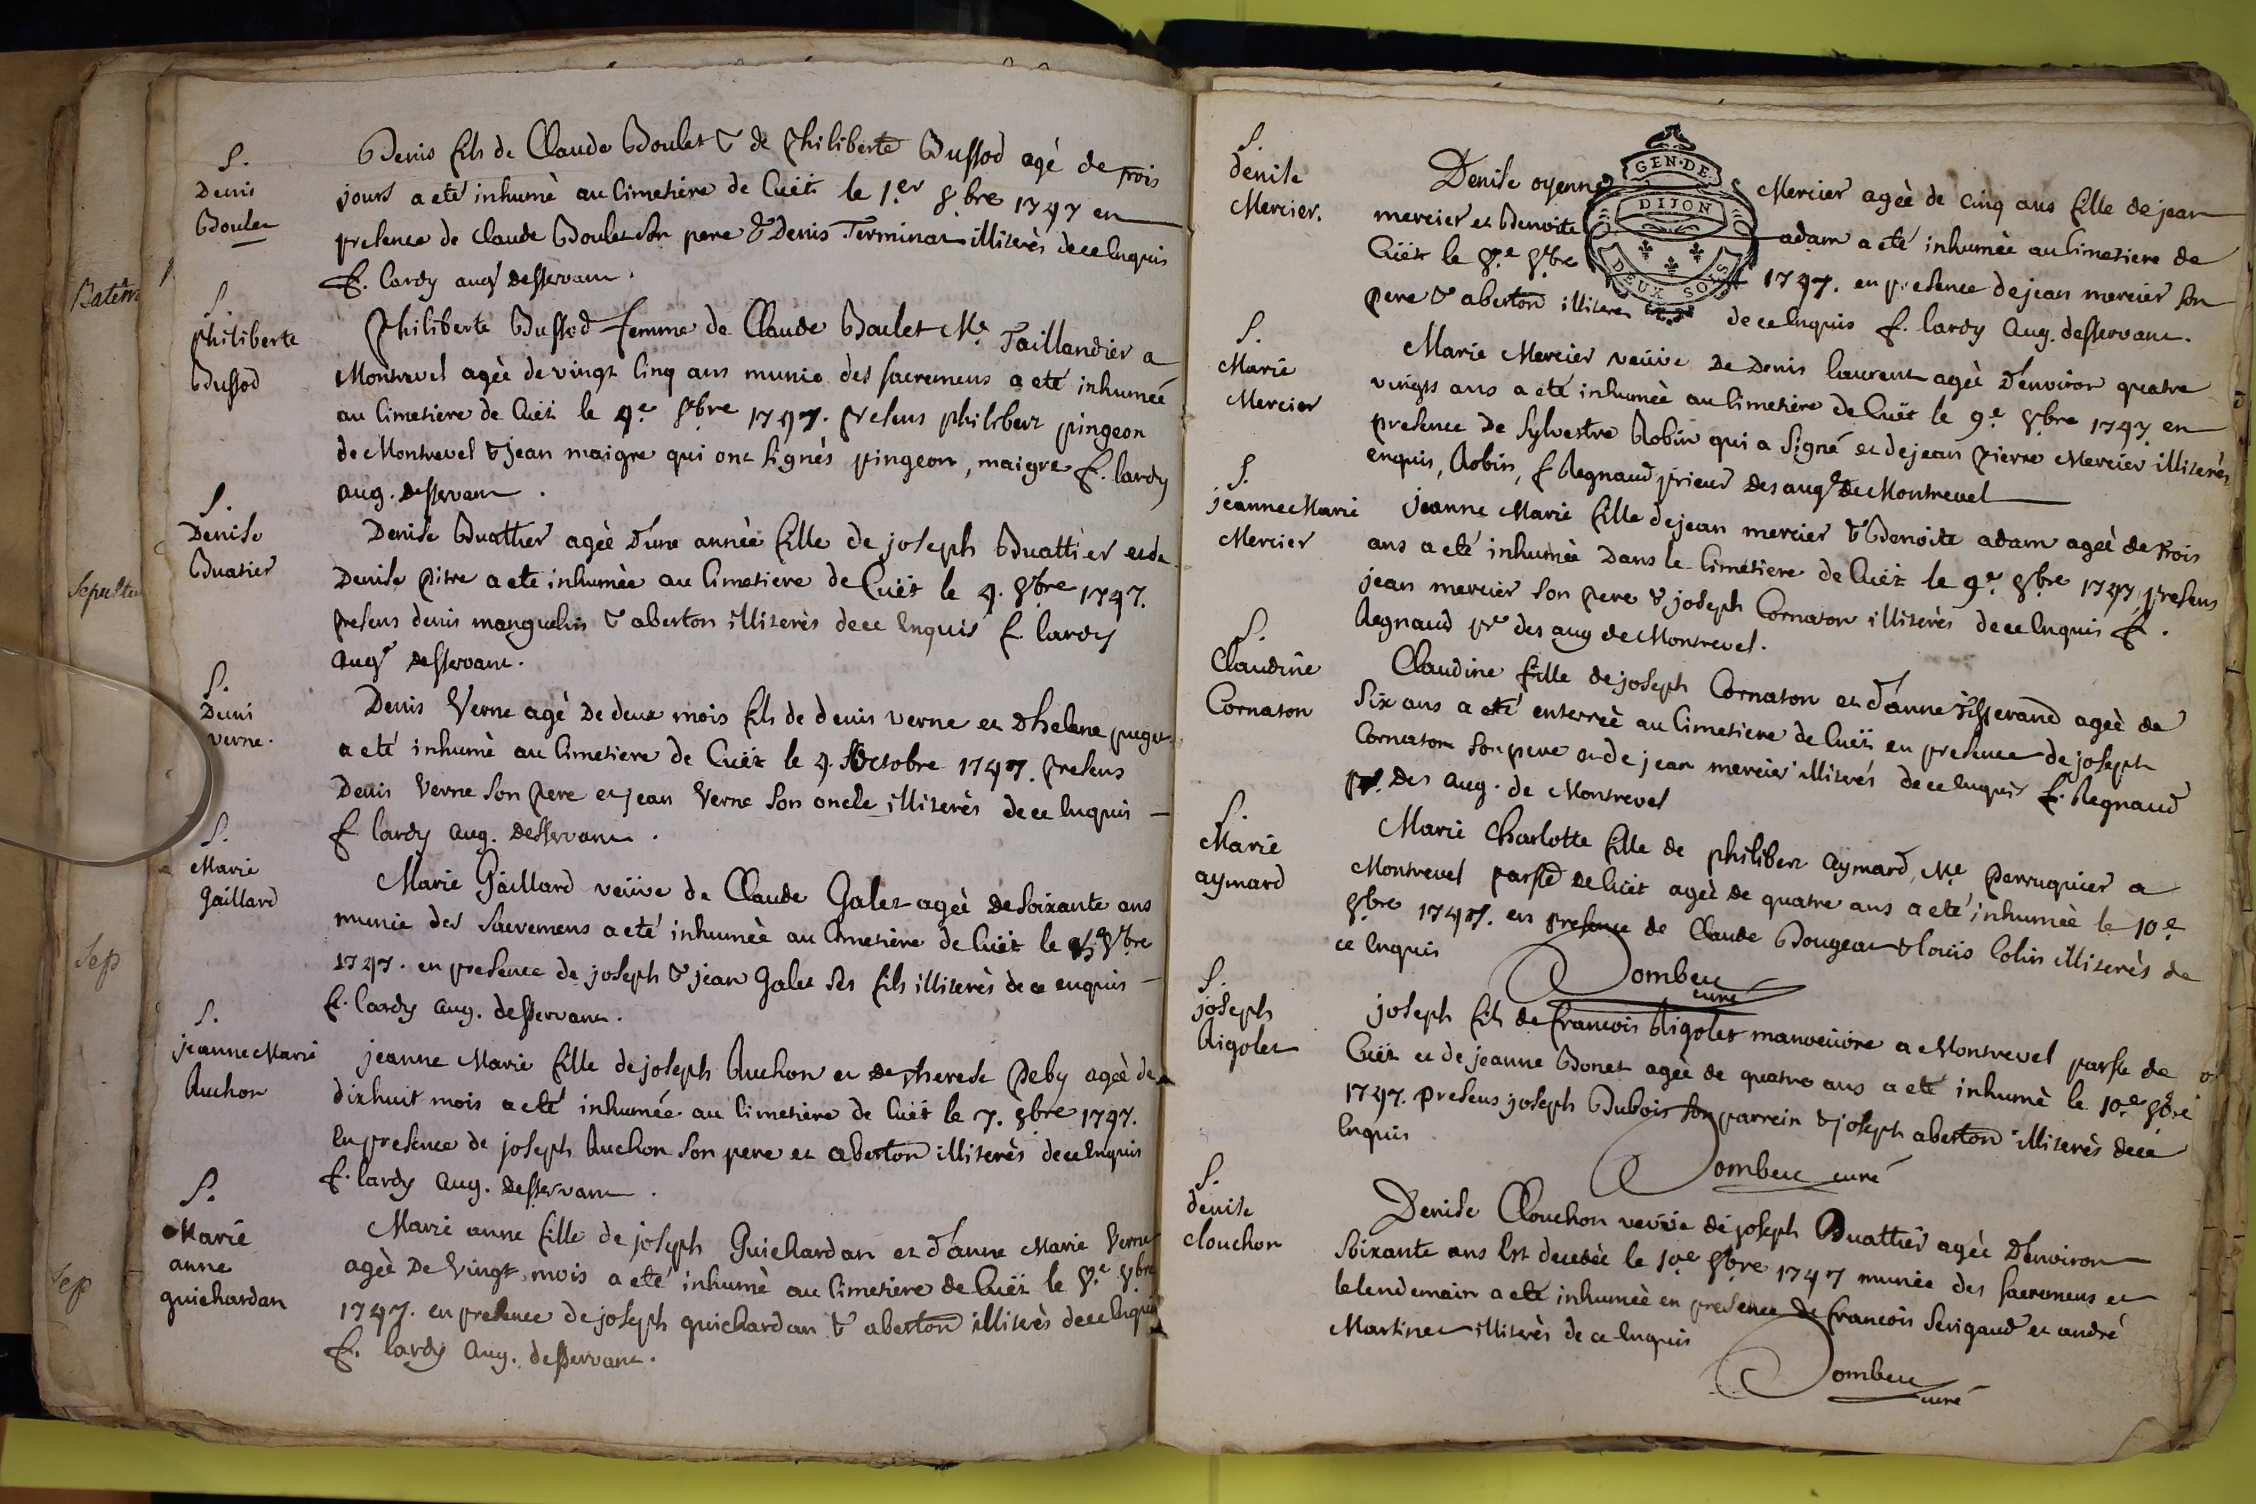 Batêm
Sepultu
Sep
Sep
S.
Denis
Boulet
Denis fils de Claude Boulet & de Philiberte Bussod agè de trois
jours a eté inhumè au Cimetière de Cuët le 1.er 8.bre 1747 en
presence de Claude Boulet son pere & Denis Terminat illiterès de ce Enquis
f. lardy aug. desservant.
S.
philiberte
Bussod
Philiberte Bussod femme de Claude Boulet Me. Taillandier a
Montrevel agèe de vingt Cinq ans munie des sacremens a eté inhumeé
au Cimetiere de Cuët le 4.e 8.bre 1747. presens philibert pingeon
de Montrevel & Jean maigre qui ont signès pingeon, maigre f. lardy
aug. desservant.
S.
Denise
Buatier
Denise Buattier agèe d'une année fille de joseph Buattier et de
Denise pitre a eté inhumèe au Cimetière de Cuët le 4. 8.bre 1747.
presens denis manguelin & aberton illiterès de ce Enquis f. lardy
augs desservant.
S.
Denis
verne.
Denis Verne agè de deux mois fils de denis verne et d'helene puget
a eté inhumè au Cimetiere de Cuët le 4. Octobre 1747. presens
Denis Verne son pere et jean Verne son oncle illiterès de ce Enquis
f. lardy aug. desservant.
S.
Marie
gaillard
Marie Gaillard veüve de Claude Galet agèe de soixante ans
munie des sacremens a eté inhumèe au Cimetière de Cuët le 8.bre
1747. en presence de joseph & jean Galet ses fils illiterès de ce enquis
f. lardy aug. desservant.
S.
jeanne Marie
Auchon
jeanne Marie fille de joseph Auchon et de therese Peby agèe de
dixhuit mois a eté inhumée au Cimetière de Cuët le 7. 8.bre 1747.
En presence de joseph Auchon son pere et aberton illiterès de ce Enquis
f. lardy aug. desservant.
S.
Marie
anne
guichardan
Marie anne fille de joseph Guichardan et d'anne Marie Verne
agèe de vingt mois a eté inhumè au Cimetiere de Cuët le 8.e 8.bre
1747. en presence de joseph guichardan & aberton illiterès de ce Enquis
f. lardy aug. desservant.
GEN·DE
DIJON
DEUX SOLS
S.
denise
Mercier.
Denise oyenne Mercier agèe de cinq ans fille de jean
mercier et Benoite adam a eté inhumèe au Cimetiere de
Cuët le 8.e 8.bre 1747. en presence de jean mercier son
pere & aberton illiteres de ce Enquis f. lardy aug. desservant.
S.
Marie
Mercier
Marie Mercier veüve de Denis laurent agèe d'environ quatre
vingts ans a eté inhumèe au Cimetière de Cuët le 9.e 8.bre 1747 en
presence de Sylvestre Robin qui a signé et de jean pierre Mercier illiterès
enquis, Robin, f. Regnaud prieur des augs de Montrevel
S.
jeanne Marie
Mercier
jeanne Marie fille de jean mercier & Benoite adam agèe de trois
ans a eté inhumèe dans le Cimetiere de Cuët le 9.e 8.bre 1747, presens
jean mercier son pere & joseph Cornaton illiterès de ce Enquis f.
Regnaud pr des aug de Montrevel.
S.
Claudine
Cornaton
Claudine fille de joseph Cornaton et d'anne tisserand agèe de
six ans a eté enterrèe au Cimetiere de Cuët en presence de joseph
Cornaton son pere et de jean mercier illiterés de ce enquis f. Regnaud
pr. des aug. de Montrevel
S.
Marie
aymard
Marie Charlotte fille de philibert aymard, Me Perruquier a
Montrevel parsse de Cuët agèe de quatre ans a eté inhumèe le 10.e
8bre 1747. en presence de Claude Bougeat & loüis Colin illiterès de
ce Enquis
Dombeu
curé
S.
joseph
Rigolet
joseph fils de francois Rigolet manoeüvre a Montrevel parsse de
Cuët et de jeanne Bonet agèe de quatre ans a eté inhumè le 10.e 8bre
1747. presens joseph Dubois son parrein & joseph aberton illiterès de ce
Enquis
Dombeu curé
S.
denise
clouchon
Denise Clouchon veuve de joseph Buattier agèe d'environ
soixante ans Est decedèe le 10.e 8bre 1747 munie des sacremens et
le lendemain a eté inhumèe en presence de francois Serigaud et andré
Martinet illiterès de ce Enquis
Dombeu
curé